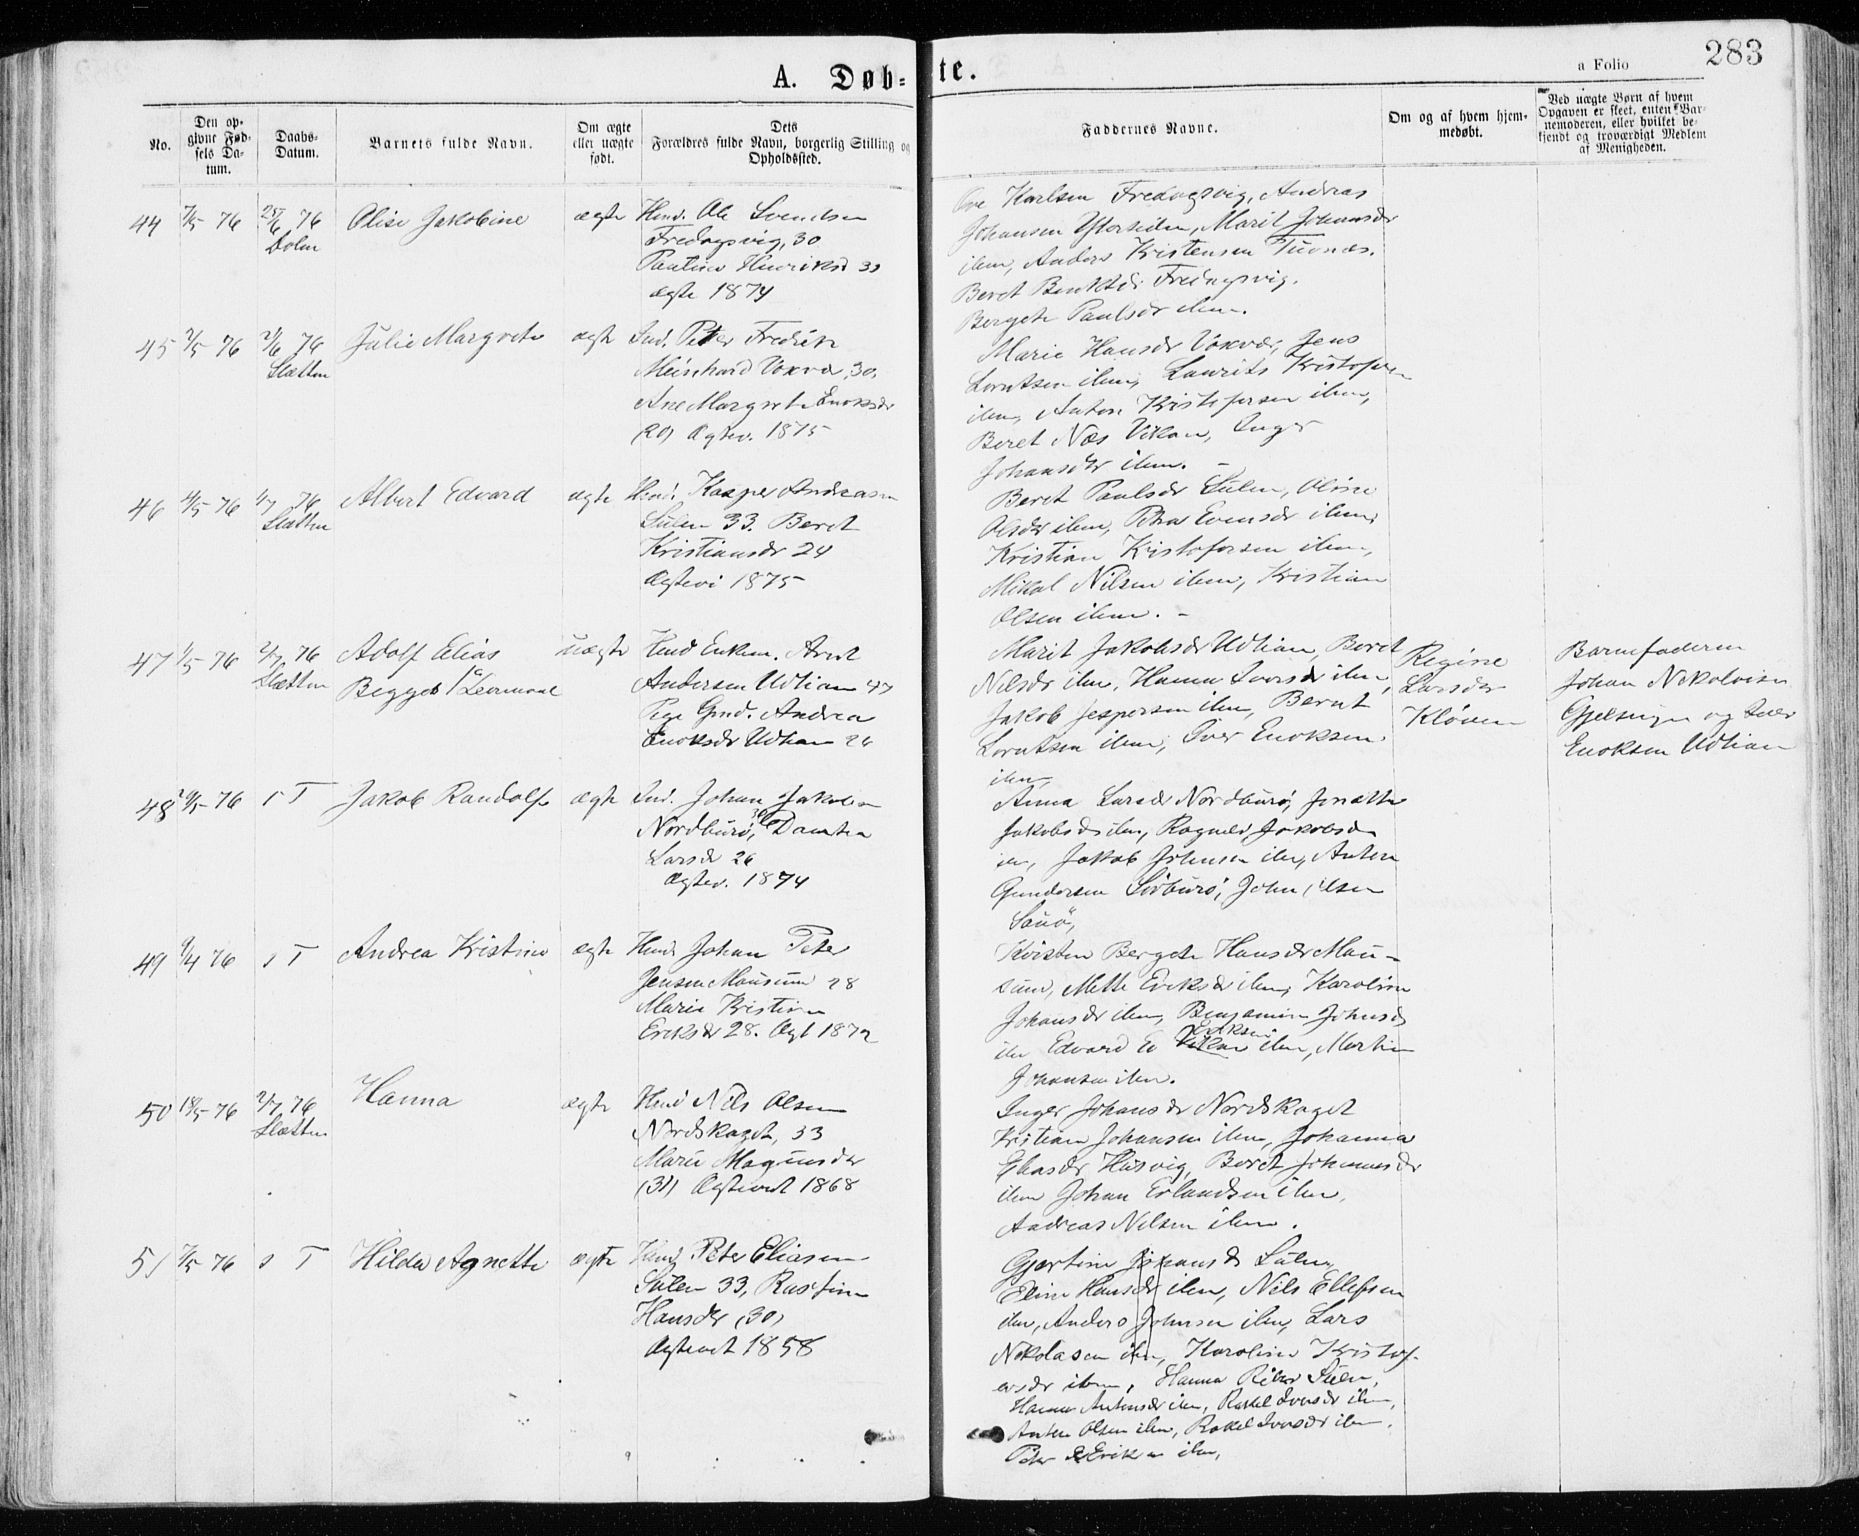 A. Døb=te.
a Folio 283
No.
Den op=givne Fød=sels Da=tum.
Daabs=Datum.
Barnets fulde Navn.
Om ægte eller uægte født.
Dets Forældres fulde Navn, borgerlig Stilling og Opholdssted.
Faddernes Navne.
Om og af hvem hjem=medøbt.
Ved uægte Børn af hvem Opgaven er skeet, enten Bar=nemoderen, eller hvilket be=kjendt og troværdigt Medlem af Menigheden.
44 7/5 76 25/6 76 Olise Jakobine ægte Hmd. Ole Svendsen
Dolm Fredagsvig, 30
Pauline Henriksd 30
ægte 1874
Ove Karlsen Fredagsvig, Andreas
Johansen Ytersiden, Marit Johansdr
ibm, Anders Kristensen Tuvnæs.
Beret Benktdr Fredagsvig.
Bergete Paulsdr ibm.
45 2/5 76 2/6 76 Julie Margrete ægte Ind. Peter Fredrik
Slætten Meinhard Voxva, 30,
Ane Margrete Enoksdr
(20) Ægtev. 1875
Marie Hansdr Voxva, Jens
Lorntsen ibm, Laurits Kristofersen
ibm, Anton Kristofersen ibm,
Beret Næs Vikan, Inger
Johansdr ibm. -
46 4/5 76 1/7 76 Albert Edvard ægte Hmd. Kasper Andreasen
Slætten Sulen 33. Beret
Kristiansdr 24
Ægtevi 1875
Beret Paulsdr Sulen, Oline
Olsdr ibm, Petra Evensdr ibm,
Kristian Kristofersen ibm,
Mikal Nilsen ibm, Kristian
Olsen ibm. -
47 1/5 76 2/7 76 Adolf Elias uægte Hmd Enkem. Arnt
Slætten Andersen Udtian 47
Pige Gmd. Andrea
Enoksdr Udtian 26
Marit Jakobsdr Udtian, Beret
Nilsdr ibm, Hanna Iversdr ibm,
Jakob Jespersen ibm, Bernt
Lorntsen ibm, Iver Enoksen
ibm,
Regine
Larsdr
Kløven
Barnefaderen
Johan Nikolaisen
og Iver
Enoksen Udtian
48 76 s T Jakob Randolf ægte Ind. Johan Jakobsen
Nordburø, 30
Larsdr 26
Ægtev. 1874
Anna Larsdr Nordburø,
Jakobsdr ibm, Jakobsen
ibm, Jakob Johnsen ibm, Anton
Gundersen Sørburø, John Olsen
Sauø,
49 9/4 76 s T Andrea Kristine ægte Hmd Johan Peter
Jensen Mausund 28
Marie Kristine
Eriksdr 28. Ægt 1872
Kristen Bergete Hansdr Mau-
sund, Mette Eriksdr ibm, Karoline
Johansdr ibm, Benjamin Johnsen
ibm Edvard Eriksen ibm, Martin
Johansen ibm.
50 18/5 76 2/7 76 Hanna ægte Hmd Nils Olsen
Slætten Nordskaget, 33
Marie Magnusdr
(31) Ægteviet 1868
Inger Johansdr Nordskaget
Kristian Johansen ibm, Johanna
Eliasdr Husvig, Beret Johannesdr
ibm Johan Erlandsen ibm,
Andreas Nelsen ibm.
51 7/5 76 s T Hilda Agnette ægte Hmd Peter Eliasen
Sulen 33,
Hansdr (30)
Ægteviet 1858
Gjertine Johansdr Sulen,
Eline Hansdr ibm, Nils Ellefsen
ibm, Anders Johnsen ibm, Lars
Nikolasen ibm, Karoline Kristof-
ersdr ibm, Hanna Sulen,
Hanna Antonsdr ibm, Rakel Iversdr ibm,
Anton Olsen ibm, Rakel Iversdr ibm.
Peter Eriksen ibm,